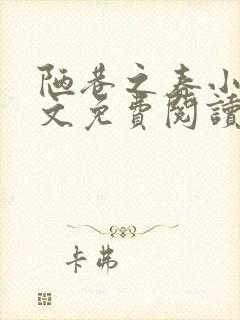 陋巷之春小
文免費閱讀
卡弗